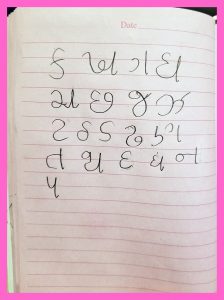 Date
ક ખ ગ ઘ
ચ છ જ ઝ
ટ ઠ ડ ઢ ણ
ત થ દ ધ ન
પ